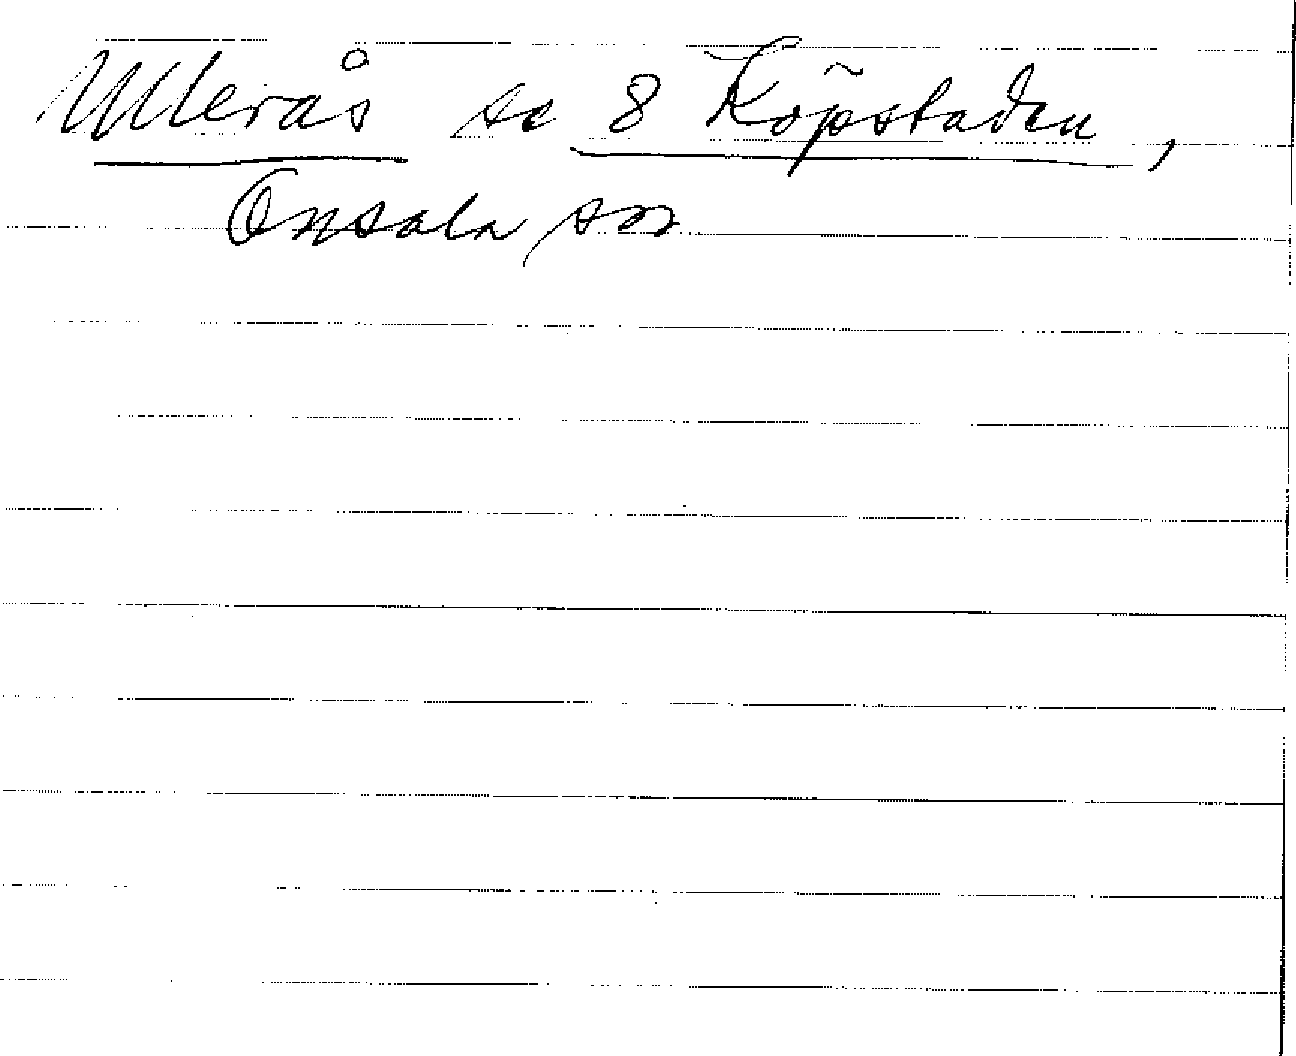 Ullerås se 8 Köpstaden,
Onsala sn